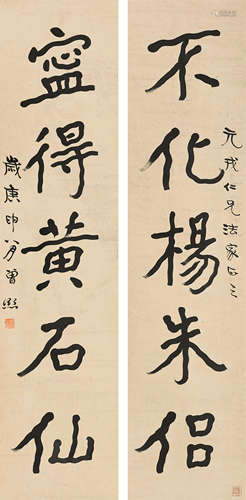 元戎仁兄法家正之
不化楊朱侣
寧得黄石仙
歲庚申八月曾熙